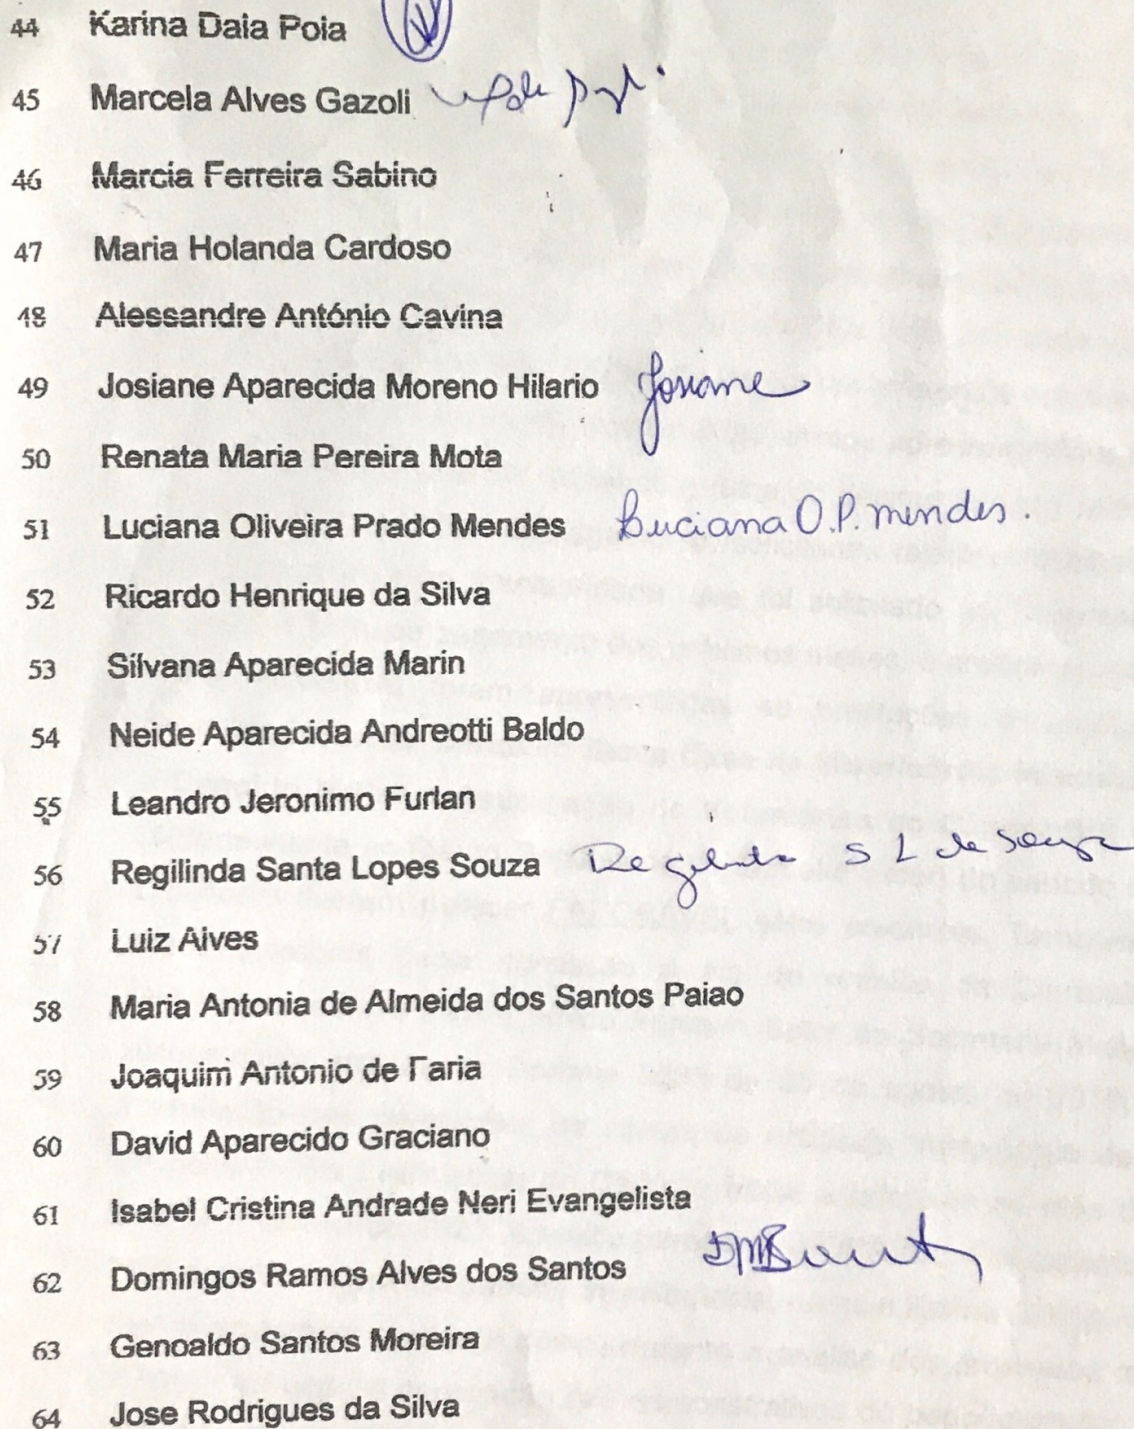 44 Karina Daia Poia
45 Marcela Alves Gazoli
46 Marcia Ferreira Sabino
47 Maria Holanda Cardoso
48 Alessandre António Cavina
49 Josiane Aparecida Moreno Hilario Josiane
50 Renata Maria Pereira Mota
51 Luciana Oliveira Prado Mendes Luciana O.P. mendes.
52 Ricardo Henrique da Silva
53 Silvana Aparecida Marin
54 Neide Aparecida Andreotti Baldo
55 Leandro Jeronimo Furlan
56 Regilinda Santa Lopes Souza Regilinda S L de Souza
57 Luiz Alves
58 Maria Antonia de Almeida dos Santos Paiao
59 Joaquim Antonio de Faria
60 David Aparecido Graciano
61 Isabel Cristina Andrade Neri Evangelista
62 Domingos Ramos Alves dos Santos
63 Genoaldo Santos Moreira
64 Jose Rodrigues da Silva